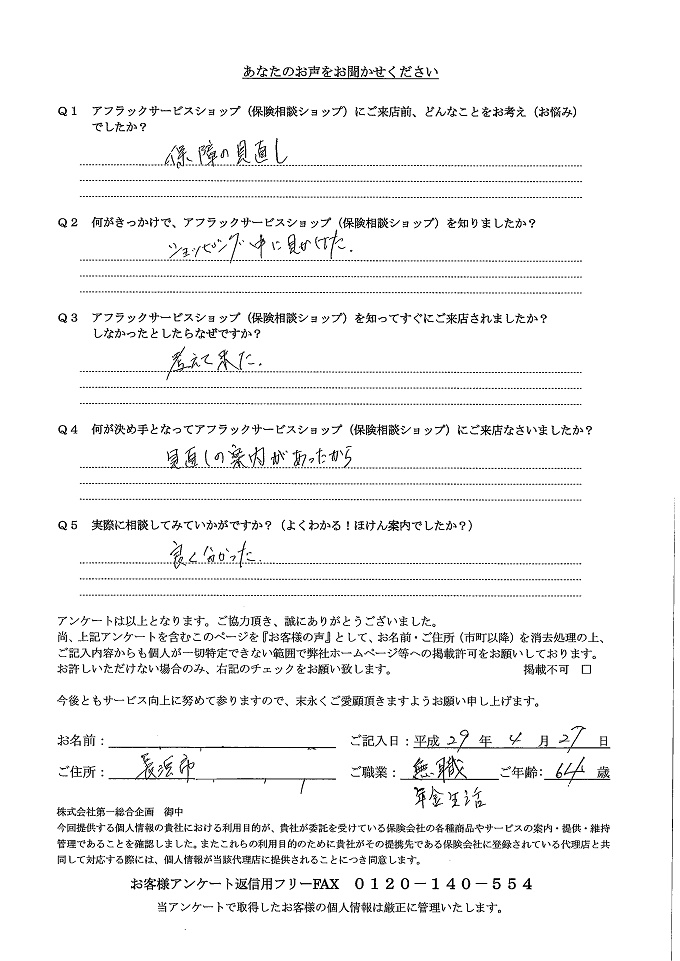 あなたのお声をお聞かせください
Q1 アフラックサービスショップ（保険相談ショップ）にご来店前、どんなことをお考え（お悩み）
でしたか？
保障の見直し
Q2 何がきっかけで、アフラックサービスショップ（保険相談ショップ）を知りましたか？
ショッピング中に見かけた.
Q3 アフラックサービスショップ（保険相談ショップ）を知ってすぐにご来店されましたか？
しなかったとしたらなぜですか？
考えて来た.
Q4 何が決め手となってアフラックサービスショップ（保険相談ショップ）にご来店なさいましたか？
見直しの案内があったから
Q5 実際に相談してみていかがですか？（よくわかる！ほけん案内でしたか？）
良く分かった.
アンケートは以上となります。ご協力頂き、誠にありがとうございました。
尚、上記アンケートを含むこのページを『お客様の声』として、お名前・ご住所（市町以降）を消去処理の上、
ご記入内容からも個人が一切特定できない範囲で弊社ホームページ等への掲載許可をお願いしております。
お許しいただけない場合のみ、右記のチェックをお願い致します。 掲載不可 □
今後ともサービス向上に努めて参りますので、末永くご愛顧頂きますようお願い申し上げます。
お名前： ご記入日：平成 29 年 4 月 27 日
ご住所： 長浜市 ご職業： 無職 ご年齢： 64 歳
年金生活
株式会社第一総合企画 御中
今回提供する個人情報の貴社における利用目的が、貴社が委託を受けている保険会社の各種商品やサービスの案内・提供・維持
管理であることを確認しました。またこれらの利用目的のために貴社がその提携先である保険会社に登録されている代理店と共
同して対応する際には、個人情報が当該代理店に提供されることにつき同意します。
お客様アンケート返信用フリーFAX 0120－140－554
当アンケートで取得したお客様の個人情報は厳正に管理いたします。